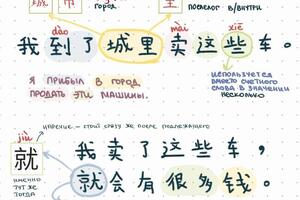 город
послелог в/внутри
dào
mài
xiē
我到了城里卖这些车。
Я прибыл в город
продать эти машины.
используется
вместо счетного
слова в значении
несколько
наречие - стоит сразу же после подлежащего
jiù
就
именно
тут же
тогда
我卖了这些车，
就会有很多钱。